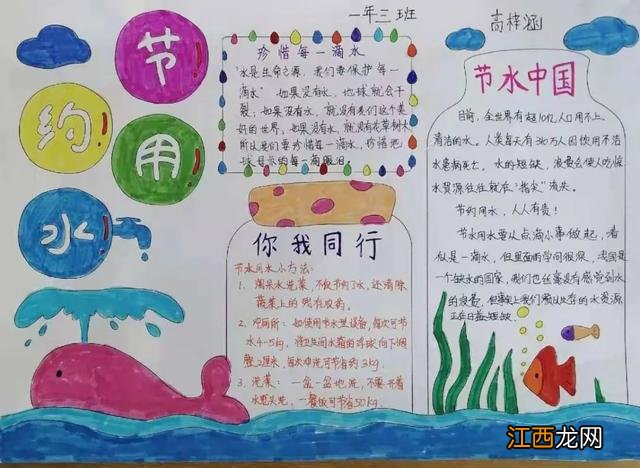 一年三班
高梓涵
节约用水
珍惜每一滴水
"水是生命之源,我们要保护每一
滴水"如果没有水,地球就会干
裂;如果没有水,就没有我们这个美
好的世界,如果没有水,就没有花草树木
所以我们要珍惜每一滴水,珍惜地
球母亲的每一滴眼泪。
你我同行
节水用水小方法:
1、淘米水洗菜,不仅节约了水,还清除
蔬菜上的残存农药。
2、冲厕所:如使用节水型设备,每次可节
水4-5kg,将卫生间水箱的浮球向下调
整2厘米,每次冲洗可节省约3kg
3、洗菜:一盆一盆地洗,不要开着
水龙头洗,一餐饭可节省50kg
节水中国
目前,全世界有超10亿人口用不上
清洁的水。人类每天有310万人因饮用不洁
水患病死亡。水的短缺,浪费会使人吃惊
水资源往往就在"指尖"流失。
节约用水,人人有责!
节水用水要从点滴小事做起,看
似是一滴水,但里面的学问很深,我国是
一个缺水的国家,我们也丝毫没有感觉到水
的浪费,但事实上我们赖以生存的水资源
正在日益短缺
江西龙网